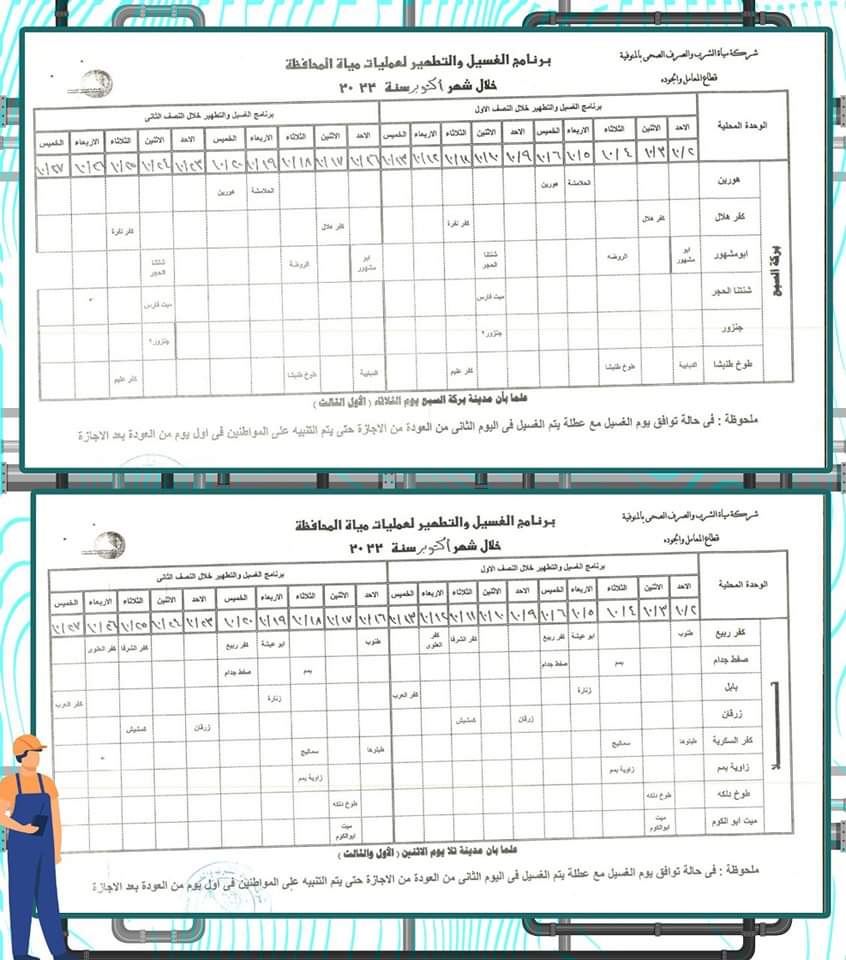 شركة مياة الشرب والصرف الصحى بالمنوفية
قطاع المعامل والجوده
برنامج الغسيل والتطهير لعمليات مياة المحافظة
خلال شهر أكتوبر سنة ٢٠٢٢
الوحدة المحلية
برنامج الغسيل والتطهير خلال النصف الاول
برنامج الغسيل والتطهير خلال النصف الثانى
الاحد الاثنين الثلاثاء الاربعاء الخميس الاحد الاثنين الثلاثاء الاربعاء الخميس الاحد الاثنين الثلاثاء الاربعاء الخميس الاحد الاثنين الثلاثاء الاربعاء الخميس
١٠/٢ ١٠/٣ ١٠/٤ ١٠/٥ ١٠/٦ ١٠/٩ ١٠/١٠ ١٠/١١ ١٠/١٢ ١٠/١٣ ١٠/١٦ ١٠/١٧ ١٠/١٨ ١٠/١٩ ١٠/٢٠ ١٠/٢٣ ١٠/٢٤ ١٠/٢٥ ١٠/٢٦ ١٠/٢٧
بركة السبع
هورين الحلامشة هورين الحلامشة هورين
كفر هلال كفر هلال كفر نقرة كفر هلال كفر نقرة
ابومشهور ابو مشهور الروضه شنتنا الحجر ابو مشهور الروضة شنتنا الحجر
شنتنا الحجر ميت فارس ميت فارس
جنزور جنزور٢ جنزور٢
طوخ طنبشا الدبابية طوخ طنبشا كفر عليم الدبابية طوخ طنبشا كفر عليم
علما بأن مدينة بركة السبع يوم الثلاثاء ( الأول الثالث )
ملحوظة : فى حالة توافق يوم الغسيل مع عطلة يتم الغسيل فى اليوم الثانى من العودة من الاجازة حتى يتم التنبيه على المواطنين فى اول يوم من العودة بعد الاجازة
شركة مياة الشرب والصرف الصحى بالمنوفية
قطاع المعامل والجوده
برنامج الغسيل والتطهير لعمليات مياة المحافظة
خلال شهر أكتوبر سنة ٢٠٢٢
الوحدة المحلية
برنامج الغسيل والتطهير خلال النصف الاول
برنامج الغسيل والتطهير خلال النصف الثانى
الاحد الاثنين الثلاثاء الاربعاء الخميس الاحد الاثنين الثلاثاء الاربعاء الخميس الاحد الاثنين الثلاثاء الاربعاء الخميس الاحد الاثنين الثلاثاء الاربعاء الخميس
١٠/٢ ١٠/٣ ١٠/٤ ١٠/٥ ١٠/٦ ١٠/٩ ١٠/١٠ ١٠/١١ ١٠/١٢ ١٠/١٣ ١٠/١٦ ١٠/١٧ ١٠/١٨ ١٠/١٩ ١٠/٢٠ ١٠/٢٣ ١٠/٢٤ ١٠/٢٥ ١٠/٢٦ ١٠/٢٧
تلا
كفر ربيع طنوب ابو عيشة كفر ربيع كفر الشرفا كفر العلوى طنوب ابو عيشة كفر ربيع كفر الشرفا كفر العلوى
صفط جدام بمم صفط جدام بمم صفط جدام
بابل زنارة كفر العرب زنارة كفر العرب
زرقان زرقان كمشيش زرقان كمشيش
كفر السكرية طبلوها سماليج طبلوها سماليج
زاوية بمم زاوية بمم زاوية بمم
طوخ دلكه طوخ دلكه طوخ دلكه
ميت ابو الكوم ميت ابوالكوم ميت ابوالكوم
علما بان مدينة تلا يوم الاثنين (الأول والثالث )
ملحوظة : فى حالة توافق يوم الغسيل مع عطلة يتم الغسيل فى اليوم الثانى من العودة من الاجازة حتى يتم التنبيه على المواطنين فى اول يوم من العودة بعد الاجازة